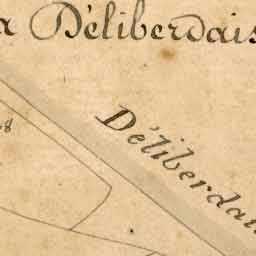 a Déliberdais
48
Déliberdan